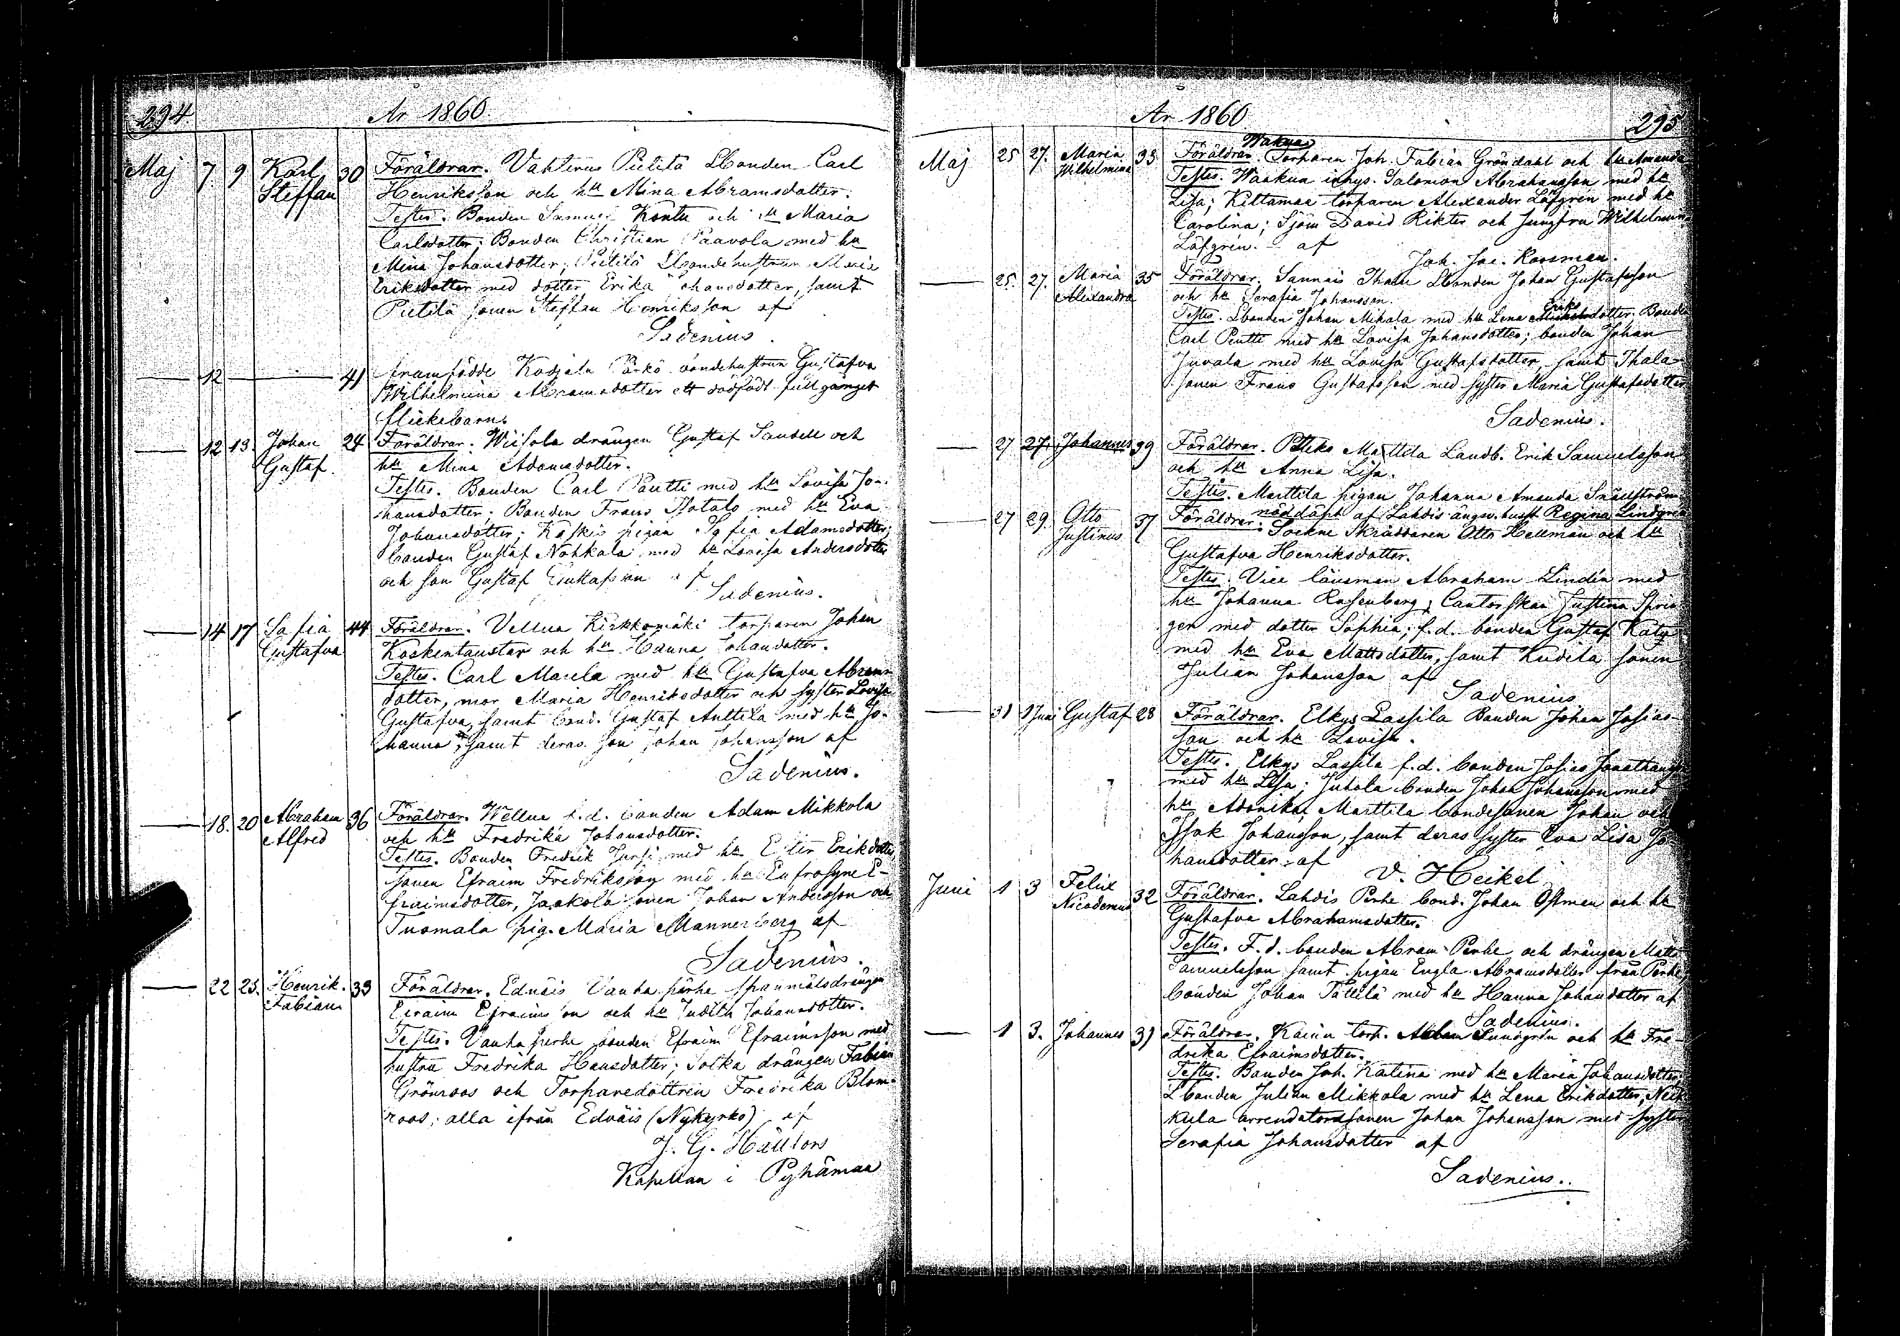 294 Ar 1860
Maj 7 9 Karl Steffan 30 Föräldrar. Vahterus Pietilä Lbonden Carl
Henriksson och hu Mina Abramsdotter.
Testes. Bonden Samuel Kontu och hu Maria
Carlsdotter; Bonden Christian Paavola med hu
Mina Johansdotter; Pietilä Lbondehustrun Maria
Eriksdotter med dotter Erika Johansdotter, samt
Pietilä sonen Steffan Henriksson af
Sadenius.
12 41 framfödde Kodjala Pärkö bondehustrun Gustafva
Wilhelmina Abramsdotter ett dödfödt fullgånget
flickebarn.
12 13 Johan Gustaf. 24 Föräldrar. Wiisola drängen Gustaf Sandell och
hu Mina Adamsdotter.
Testes. Bonden Carl Pautti med hu Lovisa Jo-
hansdotter; Bonden Frans Isotalo med hu Eva
Johansdotter; Koskis pigan Sofia Adamsdotter;
bonden Gustaf Nohkala med hu Lovisa Andersdotter
och son Gustaf Gustafsson af
Sadenius.
14 17 Sofia Gustafva 44 Föräldrar. Vellua Kirkkomäki torparen Johan
Koskentaustar och hu Hanna Johansdotter.
Testes. Carl Marila med hu Gustafva Abrams
dotter, mor Maria Henriksdotter och syster Lovisa
Gustafva, samt bond. Gustaf Anttila med hu Jo-
hanna, samt deras son Johan Johansson af
Sadenius.
18. 20 Abraham Alfred 36 Föräldrar. Wellua f.d. bonden Adam Mikkola
och hu Fredrika Johansdotter.
Testes. Bonden Fredrik Jursi med hu Ester Eriksdotter
sonen Efraim Fredriksson med hu Eufrosyne E-
fraimsdotter, Jaakola sonen Johan Andersson och
Tuomala pig. Maria Mannerberg af
Sadenius.
22 25. Henrik Fabian 33 Föräldrar. Edväis Vanha perhe spanmålsdrängen
Efraim Efraimsson och hu Judith Johansdotter.
Testes. Vanhaperhe bonden Efraim Efraimsson med
hustru Fredrika Hansdotter; Sotka drängen Fabian
Grönroos och Torparedottren Fredrika Blom-
roos; alla ifrån Edväis (Nykyrko) af
J. G. Hällfors
Kapellan i Pyhämaa
Ar 1860 295
Maj 25 27. Maria Wilhelmina 33 Wakua
Föräldrar. Torparen Joh. Fabian Gröndahl och hu Amanda
Testes. Waakua inhys. Salomon Abrahamsson med hu
Lisa; Kiltamaa torparen Alexander Löfgren med hu
Carolina; Sjöm David Rikter och Jungfru Wilhelmina
Löfgren. af
Joh. Jac. Roosman.
25. 27. Maria Alexandra 35 Föräldrar. Sannais Thala Lbonden Johan Gustafsson
och hu Serafia Johansson.
Testes. Lbonden Johan Mikola med hu Lena Eriksdotter; Bonden
Carl Pentti med hu Lovisa Johansdotter; bonden Johan
Juvala med hu Lovisa Gustafsdotter, samt Thala
sonen Frans Gustafsson med syster Maria Gustafsdotter
Sadenius.
27 27. Johannes 39 Föräldrar. Marttila Landb. Erik Samuelsson
och hu Anna Lisa.
Testes. Marttila pigan Johanna Amanda Snällström
nöddöpt af Lahdis ängsv. hust Regina Lindgren
27 29. Otto Justinus 37 Föräldrar. Sockne Skräddaren Otto Hellman och hu
Gustafva Henriksdotter.
Testes. Vice länsman Abraham Lindén med
hu Johanna Rosenberg; Cantorskan Justina Sprin-
gen med dotter Sophia; f.d. bonden Gustaf Katja
med hu Eva Mattsdotter, samt Kudila sonen
Julian Johansson af
Sadenius
31 1 Juni Gustaf 28 Föräldrar. Elkys Lassila Bonden Johan Josias-
son och hu Lovisa.
Testes. Elkys Lassila f.d. bonden Josias Jonathansson
med hu Lisa; Juhola bonden Johan Johansson med
hu Adorika, Marttila bondesonen Johan och
Isak Johansson, samt deras syster Eva Lisa Jo
hansdotter af
V. Heikel
Juni 1 3 Felix Nicodemus 32 Föräldrar. Lahdis Perhe bond. Johan Östman och hu
Gustafva Abrahamsdotter.
Testes. F.d. bonden Abram Perhe och drängen Matts
Samuelsson samt pigan Engla Abramsdotter från Perhe,
bonden Johan Tättilä med hu Hanna Johansdotter af
Sadenius.
1 3. Johannes 31 Föräldrar. torp. Sundgrén och hu Fre-
drika Efraimsdotter.
Testes. Bonden Joh. Katena med hu Maria Johansdotter;
Lbonden Julian Mikkola med hu Lena Eriksdotter,
kula arrendatorssonen Johan Johansson med syster
Serafia Johansdotter af
Sadenius.